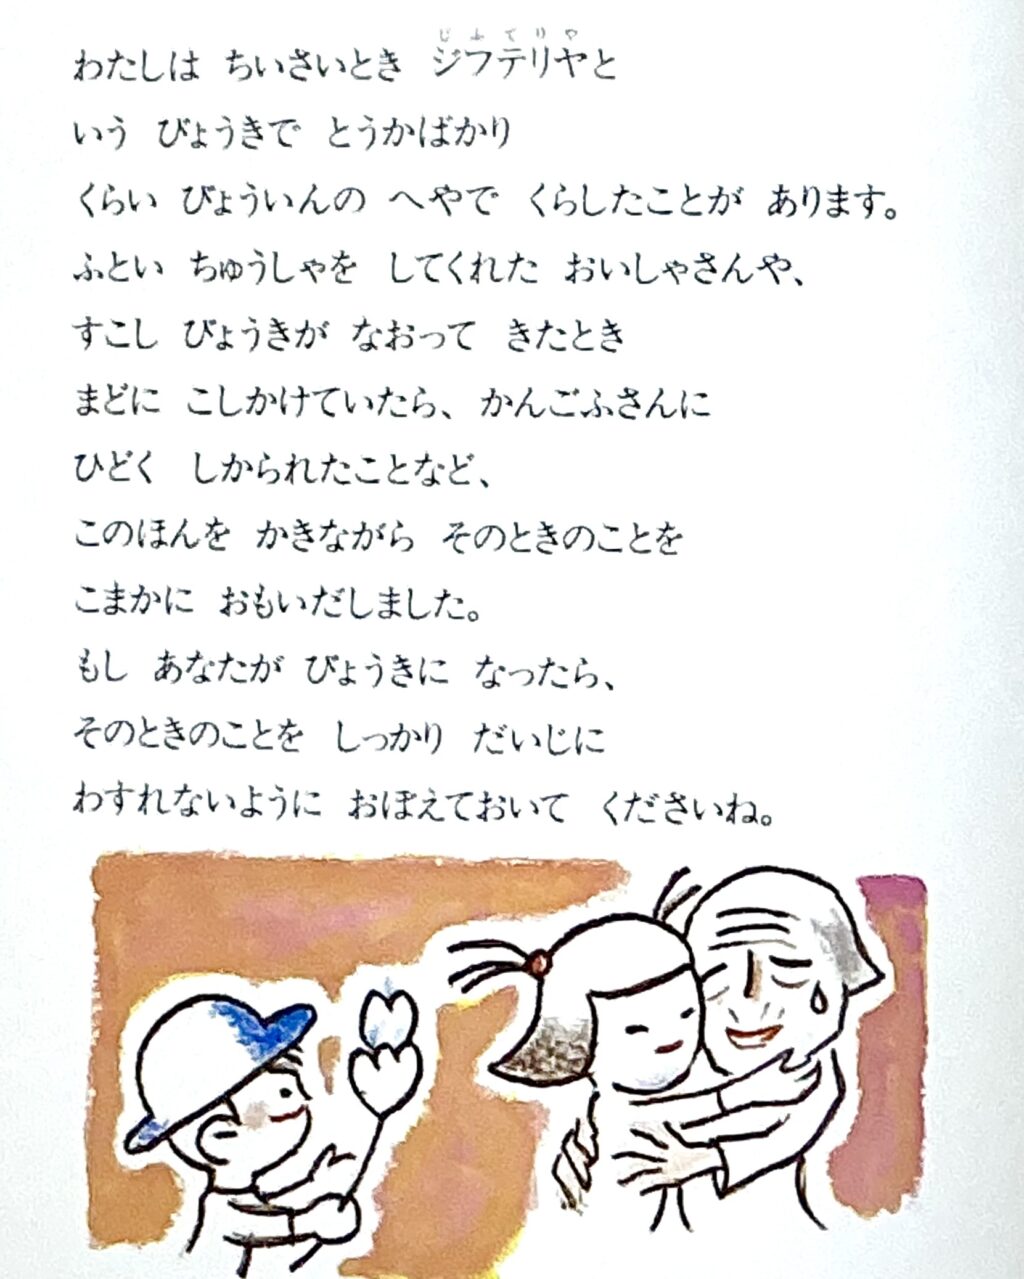 わたしは ちいさいとき ジフテリヤと
いう びょうきで とうかばかり
くらい びょういんの へやで くらしたことが あります。
ふとい ちゅうしゃを してくれた おいしゃさんや、
すこし びょうきが なおって きたとき
まどに こしかけていたら、かんごふさんに
ひどく しかられたことなど、
このほんを かきながら そのときのことを
こまかに おもいだしました。
もし あなたが びょうきに なったら、
そのときのことを しっかり だいじに
わすれないように おぼえておいて くださいね。